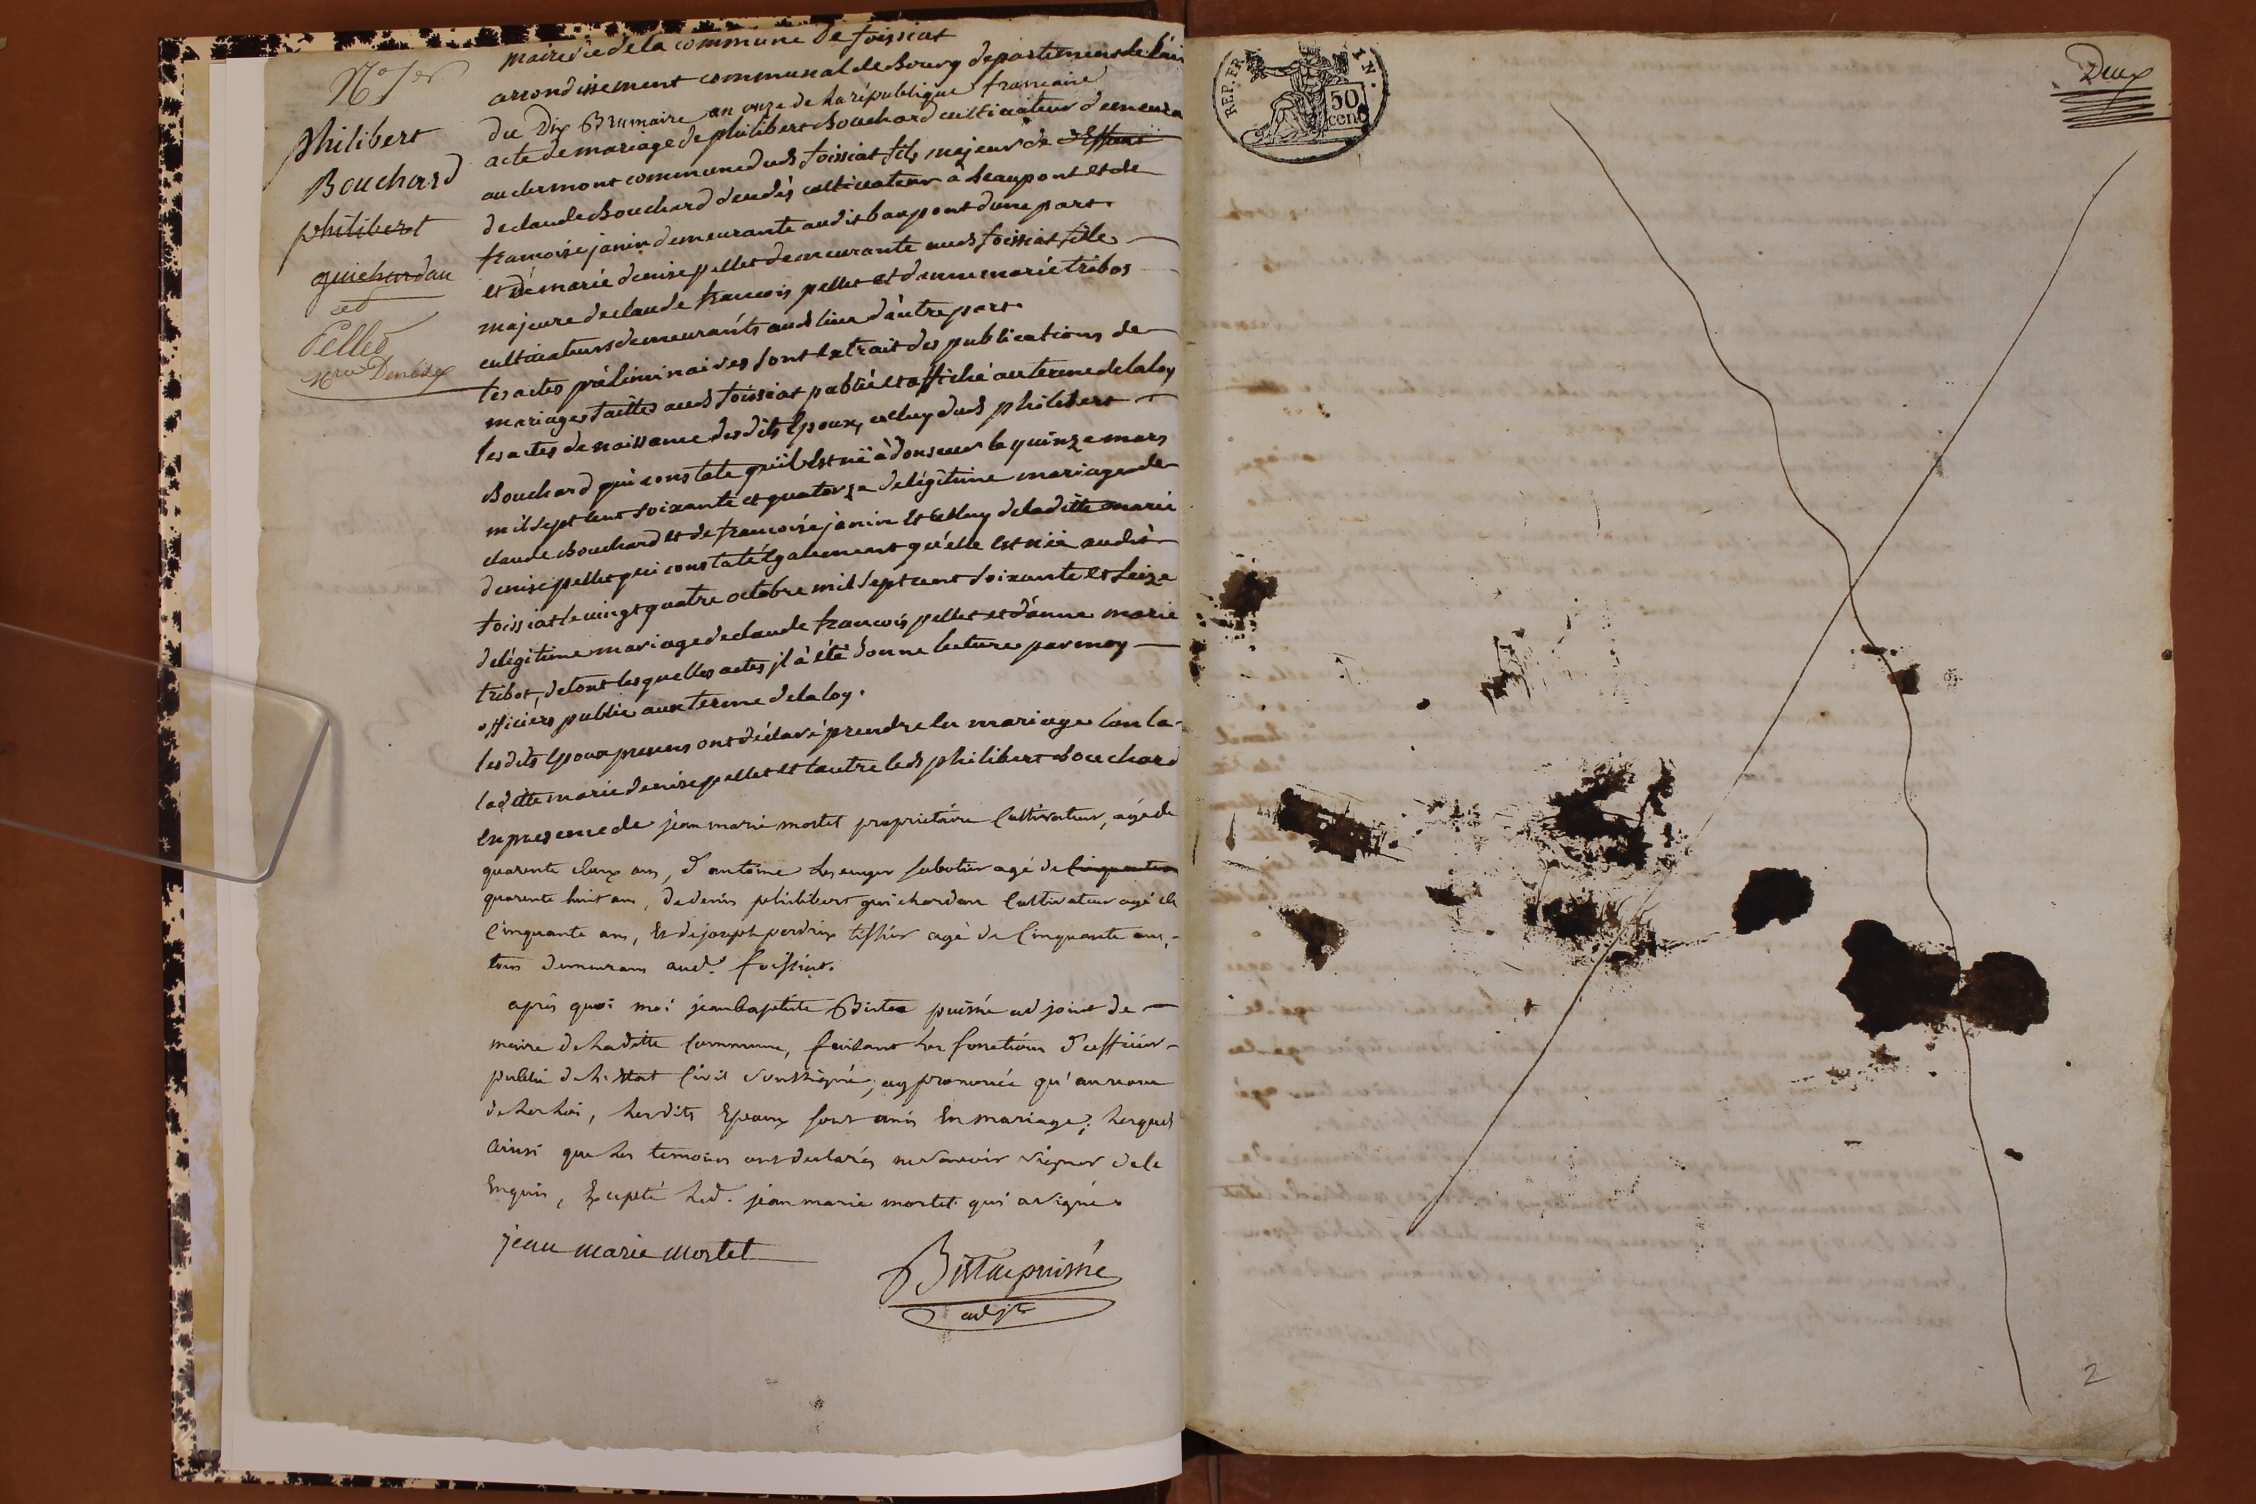 mairie de la commune de foissiat
arrondissement communal de Bourg departement de l'ain
N.° 1er
du Dix Brumaire an onze de la république francaise
Philibert
Bouchard
philibert
guichardan
et
Pellet
Mrie Denise
acte de mariage de philibert Bouchard cultivateur demeura
au clermont commune dud foissiat fils majeur de
de claude Bouchard cultivateur à beaupont et de
francoise janin demeurante audit baupont dune part.
et de marie denise pellet demeurante aud foissiat fille
majeure de claude francois pellet et danne marie tribos
cultivateurs demeurants aud lieu d'autre part.
les actes préliminaires sont extrait des publications de
mariages faittes aud foissiat publié et affiché au terme de la loy
les actes de naissance des dits Epoux, celluy dud philibert
Bouchard qui constate qu'il est né à donseur le quinze mars
mil sept cent soixante et quatorze de légitime mariage de
claude Bouchard et de francoise janin et celluy de laditte marie
denise pellet qui constate également qu'elle est née audit
foissiat le vingt quatre octobre mil sept cent soixante et seize
de légitime mariage de claude francois pellet et d'anne marie
tribot, de tout lesquelles actes il à été donne lecture par moy
officiers public aux terme de la loy.
les dits Epoux presens ont déclaré prendre en mariage l'un la
laditte marie denise pellet et l'autre led philibert Bouchard
en presence de jean marie mortet propriétaire Cultivateur, agé de
quarente deux ans, d'antoine sabotier agé de
quarente huit ans, de denis philibert guichardan Cultivateur agé de
Cinquante ans, Et de joseph perdrix tissier agé de Cinquante ans,
tous demeurans aud. foissiat.
après quoi moi jean baptiste puisné adjoint de
maire de laditte Commune, faisant les fonctions d'officier
public de l'état Civil soussigné, ay prononcé qu'au nom
de la loi, lesdits Epoux sont unis En mariage; lesquels
ainsi que les temoins ont declarés ne savoir signer de ce
Enquis, Excepté led. jean marie mortet qui a signé.
jean marie mortet
puisné
adjt
REP. FRA
50
cent
Deux
2